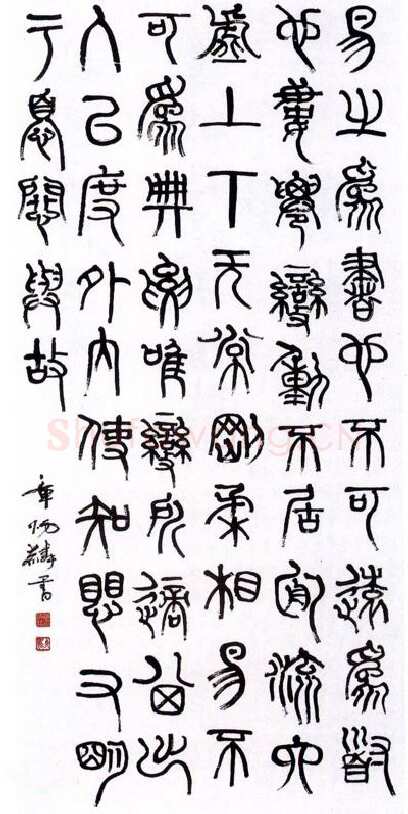 易之為書也不可遠為道
也屢遷變動不居周流六
虛上下无常剛柔相易不
可為典要唯變所適其出
入以度外內使知懼又明
于憂患與故
章炳麟書